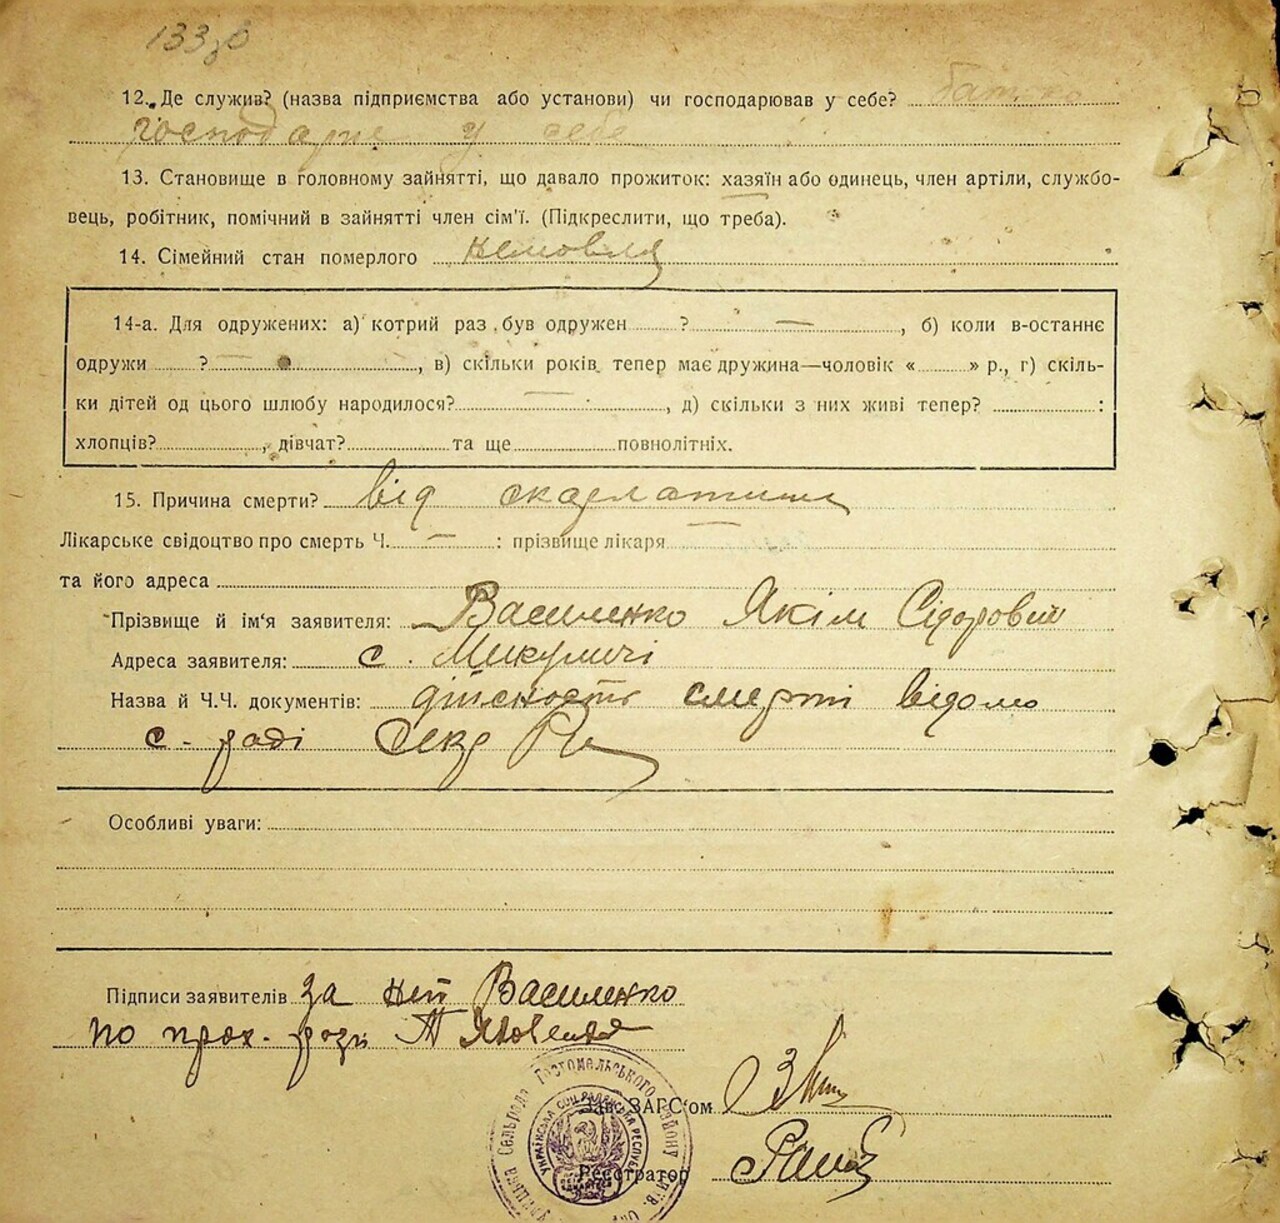 133зв
12. Де служив? (назва підприємства або установи) чи господарював у себе? батько
господарює у себе
13. Становище в головному зайнятті, що давало прожиток: хазяїн або одинець, член артіли, службо-
вець, робітник, помічний в зайнятті член сім'ї. (Підкреслити, що треба).
14. Сімейний стан померлого немовля
14-а. Для одружених: а) котрий раз був одружен ? —, б) коли в-останнє
одружи ? —, в) скільки років тепер має дружина—чоловік « » р., г) скіль-
ки дітей од цього шлюбу народилося? —, д) скільки з них живі тепер? :
хлопців? , дівчат? та ще повнолітніх.
15. Причина смерти? від скарлатини
Лікарське свідоцтво про смерть Ч. — : прізвище лікаря —
та його адреса
Прізвище й ім'я заявителя: Василенко Якім Сідорович
Адреса заявителя: с. Микуличі
Назва й Ч.Ч. документів: дійсность смерті відомо
с. раді Секр
Особливі уваги:
Підписи заявителів за ней Василенко
по прох. розп
Зав. ЗАГС'ом
Реєстратор
Сельрада Гостомельського району Київ.
УКРАЇНСЬКА СОЦ. РАДЯНСЬКА РЕСПУБ